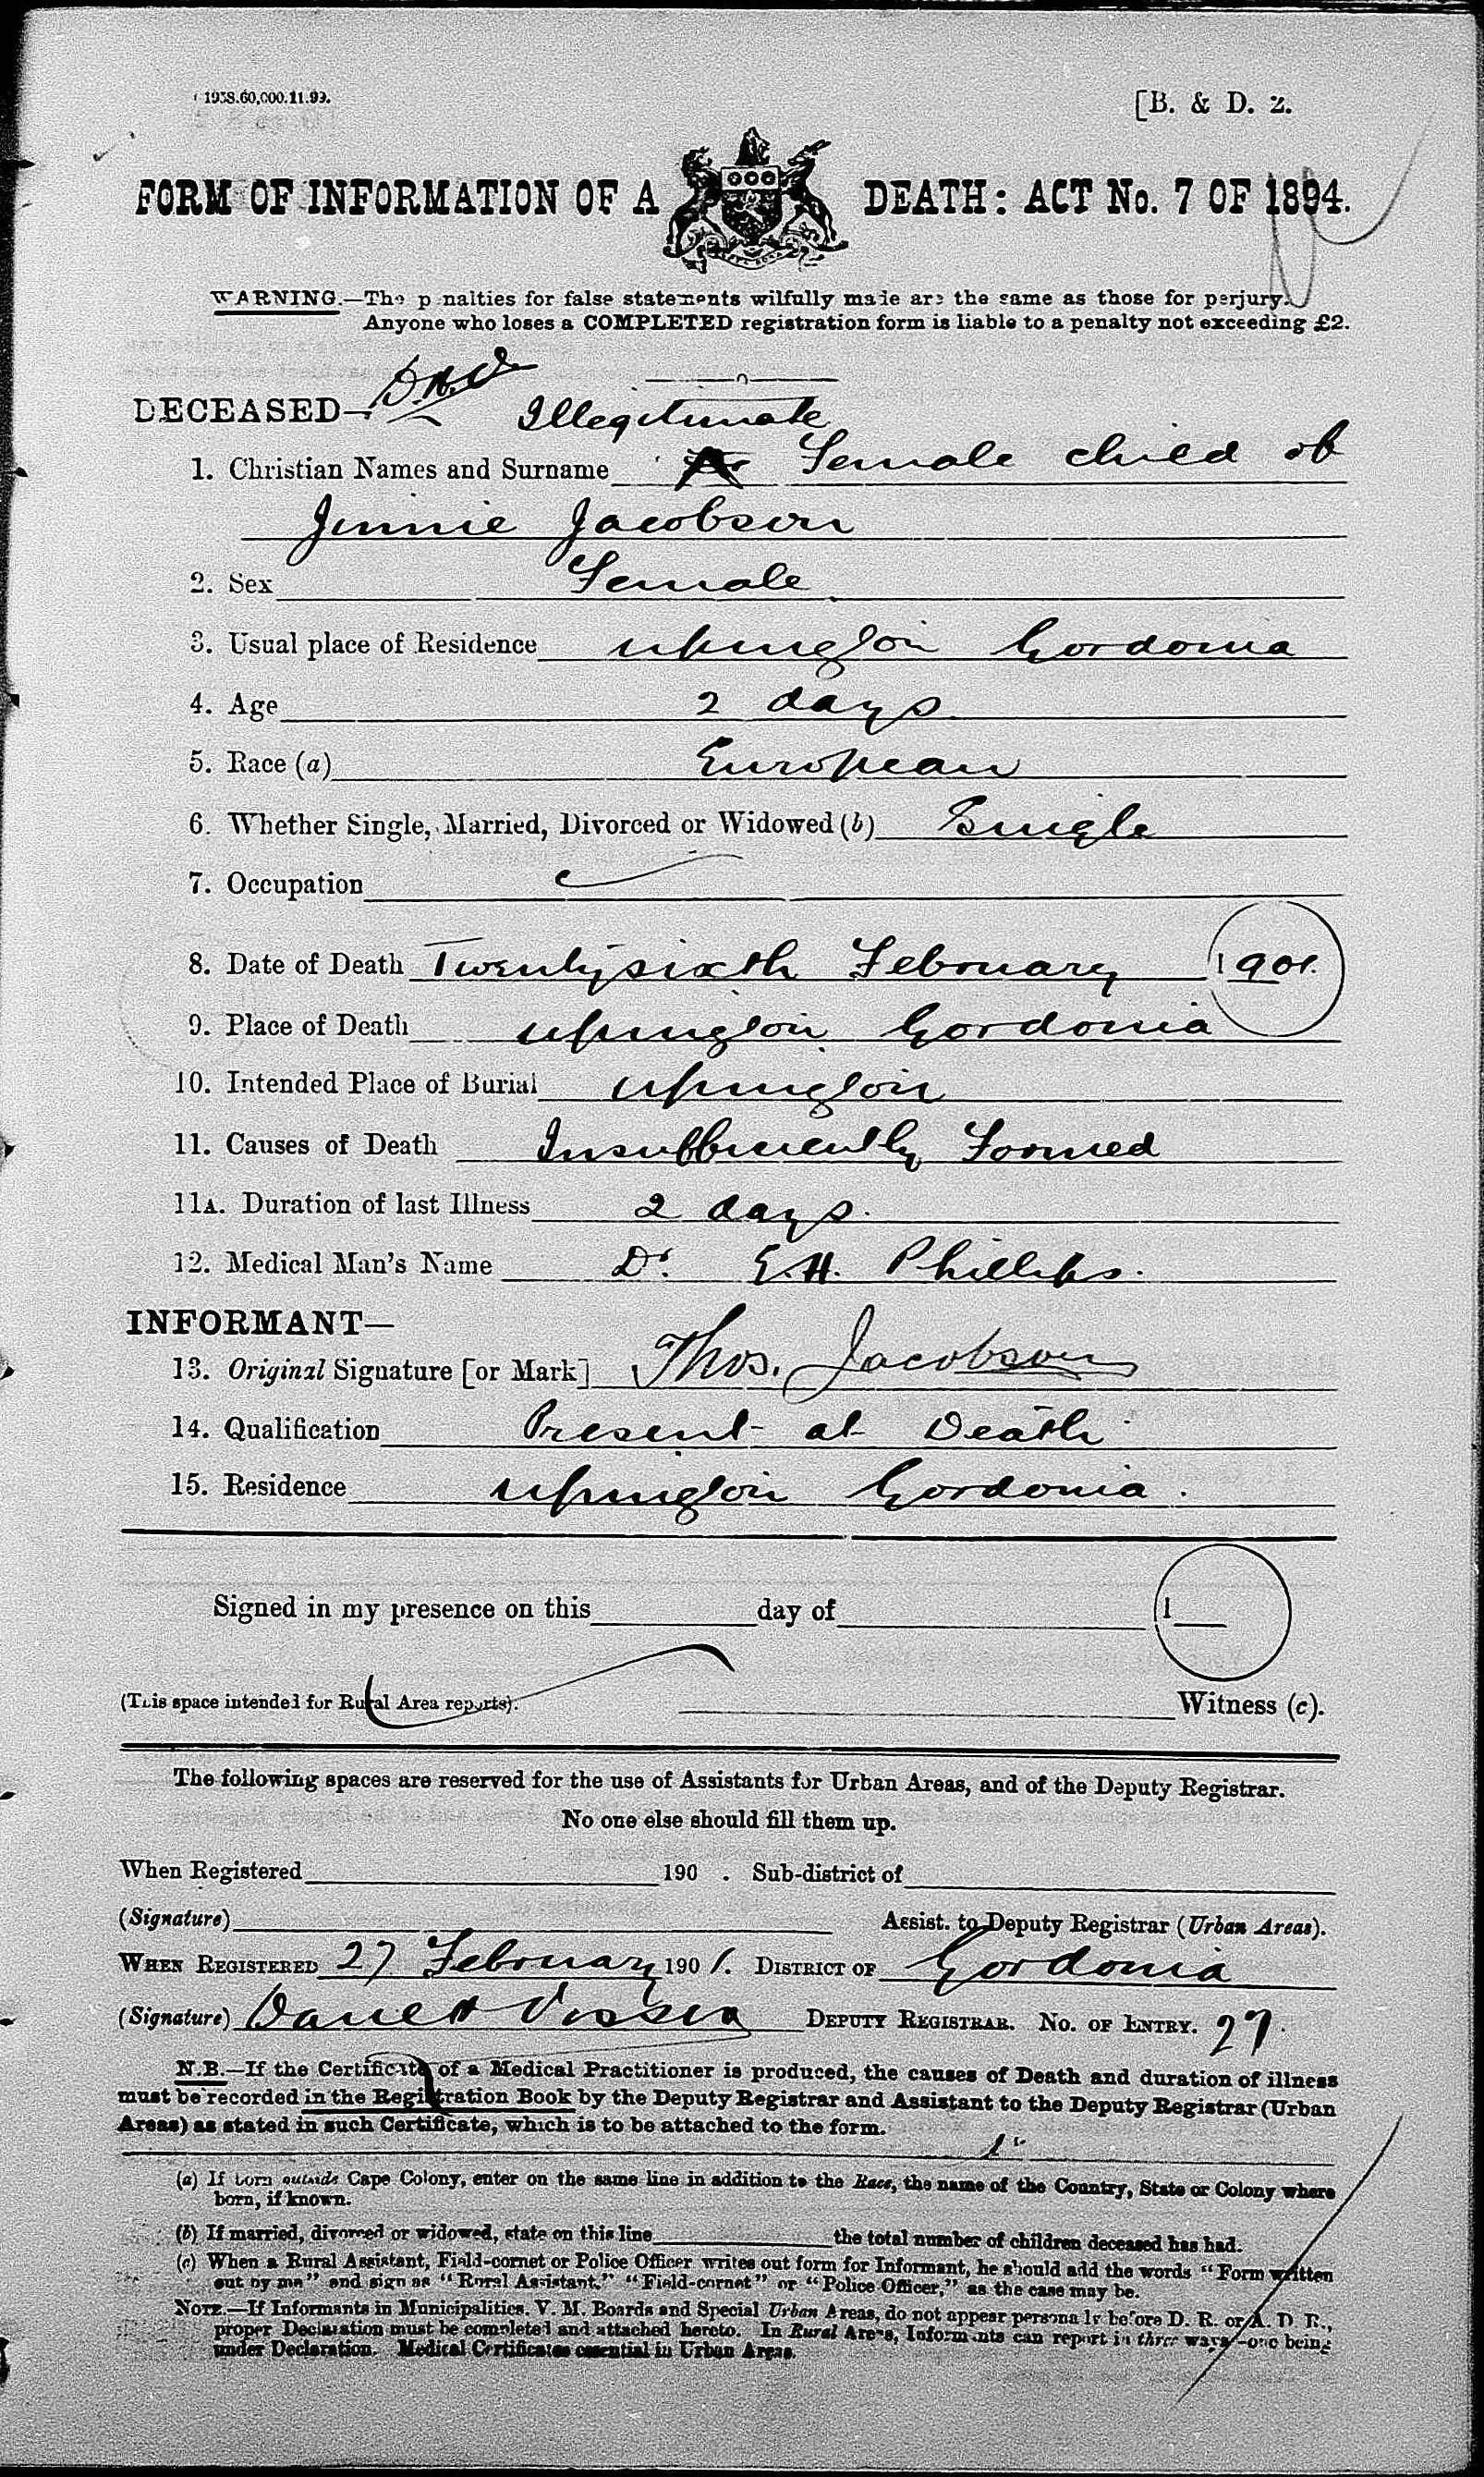 1938.60,000.11.99.
[B. & D. 2.
FORM OF INFORMATION OF A DEATH: ACT No. 7 OF 1894.
WARNING.—The penalties for false statements wilfully made are the same as those for perjury.
Anyone who loses a COMPLETED registration form is liable to a penalty not exceeding £2.
DECEASED— Illegitimate
1. Christian Names and Surname Female child of
Jinnie Jacobson
2. Sex Female.
3. Usual place of Residence Upington Gordonia
4. Age 2 days
5. Race (a) European
6. Whether Single, Married, Divorced or Widowed (b) Single
7. Occupation
8. Date of Death Twentysixth February 1901.
9. Place of Death Upington Gordonia
10. Intended Place of Burial Upington
11. Causes of Death Insufficiently Formed
11A. Duration of last Illness 2 days.
12. Medical Man's Name Dr. E.H. Phillips.
INFORMANT—
13. Original Signature [or Mark] Thos. Jacobson
14. Qualification Present at Death
15. Residence Upington Gordonia.
Signed in my presence on this day of 1
(This space intended for Rural Area reports). Witness (c).
The following spaces are reserved for the use of Assistants for Urban Areas, and of the Deputy Registrar.
No one else should fill them up.
When Registered 190 . Sub-district of
(Signature) Assist. to Deputy Registrar (Urban Areas).
WHEN REGISTERED 27 February 1901. DISTRICT OF Gordonia
(Signature) DEPUTY REGISTRAR. No. OF ENTRY. 27.
N.B.—If the Certificate of a Medical Practitioner is produced, the causes of Death and duration of illness
must be recorded in the Registration Book by the Deputy Registrar and Assistant to the Deputy Registrar (Urban
Areas) as stated in such Certificate, which is to be attached to the form.
(a) If born outside Cape Colony, enter on the same line in addition to the Race, the name of the Country, State or Colony where
born, if known.
(b) If married, divorced or widowed, state on this line the total number of children deceased has had.
(c) When a Rural Assistant, Field-cornet or Police Officer writes out form for Informant, he should add the words "Form written
out by me" and sign as "Rural Assistant," "Field-cornet" or "Police Officer," as the case may be.
NOTE.—If Informants in Municipalities, V. M. Boards and Special Urban Areas, do not appear personally before D. R. or A. D R.,
proper Declaration must be completed and attached hereto. In Rural Areas, Informants can report in three ways—one being
under Declaration. Medical Certificates essential in Urban Areas.